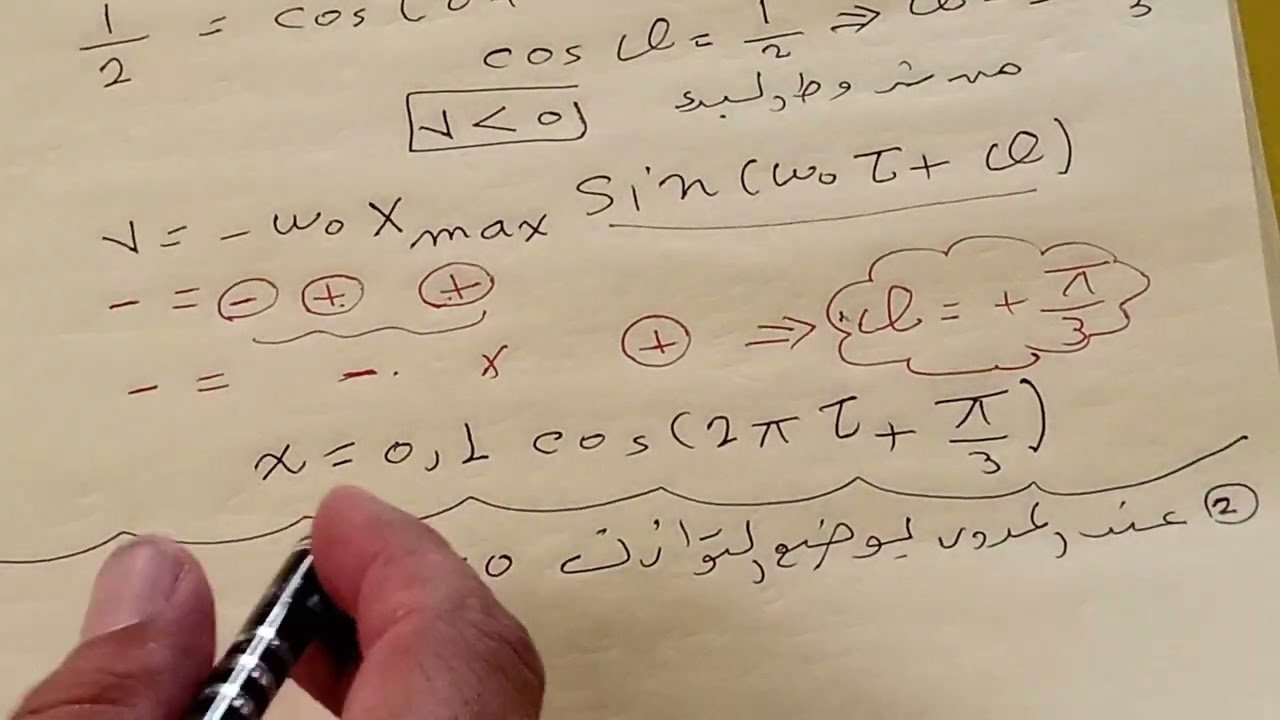 1/2 = cos
cos φ = 1/2 ⇒ φ = 3
من شروط البدء
v < 0
v = - ω₀ Xmax sin(ω₀ t + φ)
- = - + +
- = - . x + ⇒ φ = + π/3
x = 0,1 cos(2π t + π/3)
② عند المرور بوضع التوازن 0